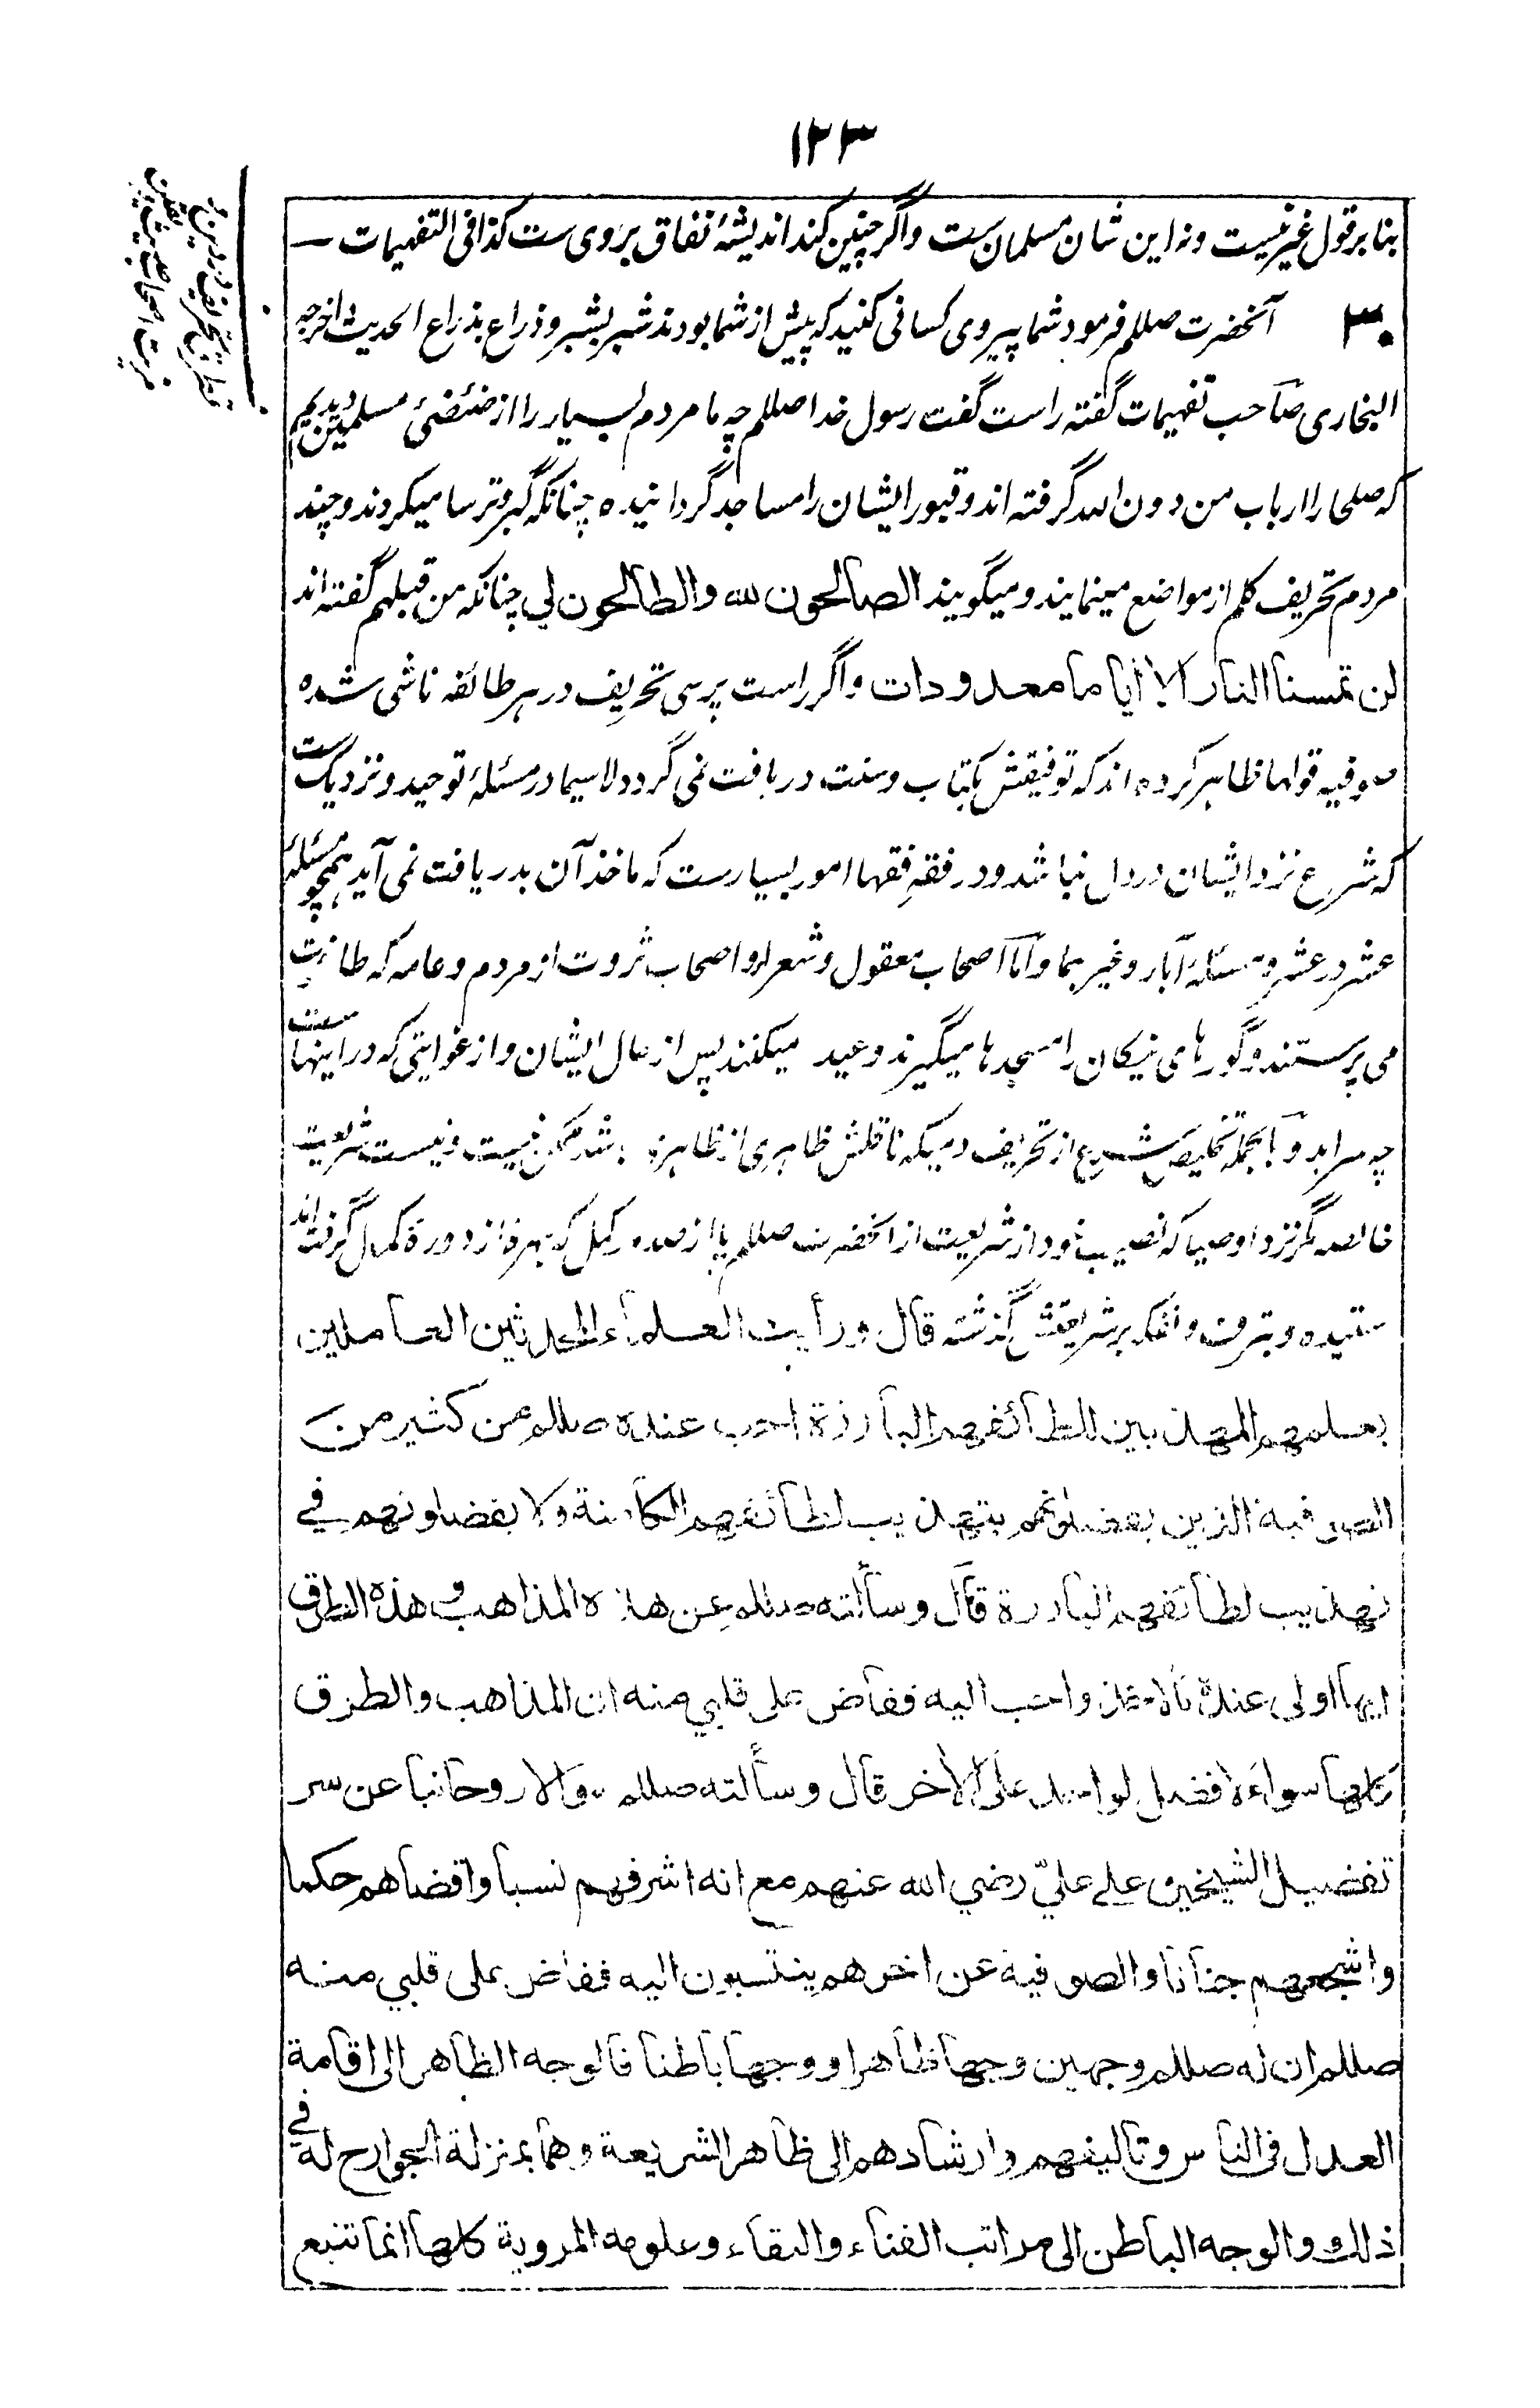 ۱۲۳
بنا بر قول غیر نیست ونه این شان مسلمان ست واگر چنین کند اندیشهٔ نفاق بروی ست کذا فی التفهیمات —
۳۰ آنحضرت صللم فرمود شما پیروی کسانی کنید که پیش از شما بودند شبر بشبر وذراع بذراع الحدیث اخرجه
البخاری صاحب تفهیمات گفته راست گفت رسول خدا صللم چه ما مردم بسیار را از ضئضئ مسلمین دیدیم
که صلحا را ارباب من دون الله گرفته اند و قبور ایشان را مساجد گردانیده چنانکه گبر و ترسا میکردند و چند
مردم تحریف کلم از مواضع مینمایند و میگویند الصالحون لله والطالحون لي چنانکه من قبلهم گفته اند
لن تمسنا النار الا أیاما معدودات واگر راست پرسی تحریف در هر طائفه ناشی شده
صوفیه قولها ظاهر کرده اند که توفیقش بکتاب و سنت دریافت نمی گردد لا سیما در مسئلهٔ توحید و نزدیک ست
که شرع نزد ایشان در دل نباشد و در فقهِ فقها امور بسیار ست که ماخذ آن بدریافت نمی آید همچو مسئلهٔ
عشر در عشر و مسئلهٔ آبار و غیر هما و اما اصحاب معقول و شعرا و اصحاب ثروت از مردم و عامه که
می پرستند و گورهای نیکان را مسجدها میگیرند و عید میکنند پس از حال ایشان و از غوایتی که در اینها ست
چه سراید و بالجمله تخلیص شرع از تحریف دمیکه ناقلش ظاهری از ظاهره باشد ممکن نیست و نیست شریعت
خالصه مگر نزد اوصیا که نصیب خود از شریعت از آنحضرت صللم یا از کمل که بهره از دورهٔ کمال گرفته اند
گذشته قال ورأیت العلماء المحدثین العاملین
بعلمهم المهذبین لطائفهم البارزة احب عنده صللم من کثیر من
الصوفیة الذین یفضلونهم بتهذیب لطائفهم الکامنة ولا یفضلونهم في
تهذیب لطائفهم البارزة قال وسألته صللم عن هذه المذاهب وهذه الطرق
ایها اولی عنده بالاخذ واحب الیه ففاض علی قلبي منه ان المذاهب والطرق
کلها سواء لا فضل لواحد علی الأخر قال وسألته صللم سوالا روحانیا عن سر
تفضیل الشیخین علی عليّ رضي الله عنهم مع انه اشرفهم نسبا واقضاهم حکما
واشجعهم جنانا والصوفیة عن اخرهم ینتسبون الیه ففاض علی قلبي منه
صللم ان له صللم وجهین وجها ظاهرا و وجها باطنا فالوجه الظاهر الی اقامة
العدل فی الناس وتالیفهم وارشادهم الی ظاهر الشریعة وهما بمنزلة الجوارح له في
ذلك والوجه الباطن الی مراتب الفناء والبقاء وعلومه المرویة کلها انما تنبع